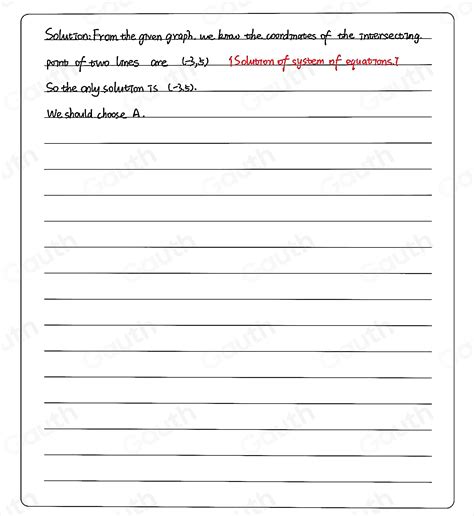 Solution: From the given graph. we know the coordinates of the intersecting.
point of two lines are (-3,5) [Solution of system of equations.]
So the only solution is (-3,5).
We should choose A.
Gauth